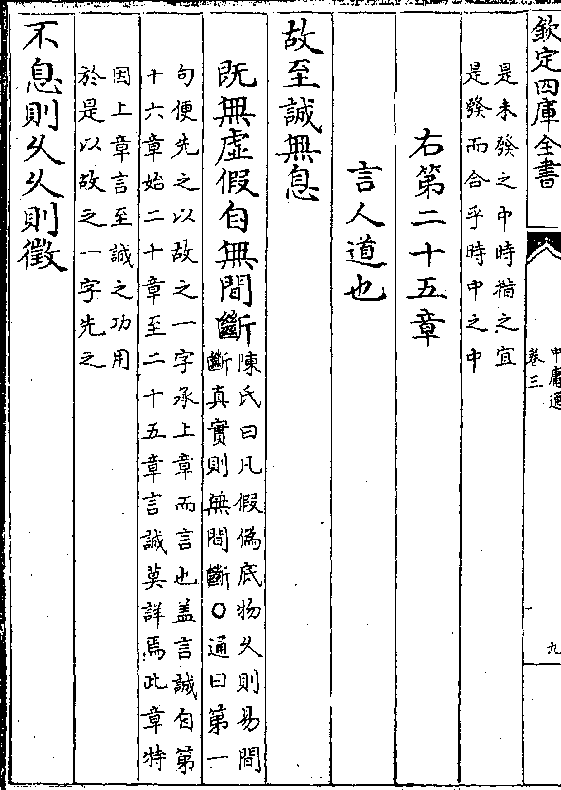 欽定四庫全書
中庸通
卷三
九
是未發之中時措之宜
是發而合乎時中之中
右第二十五章
言人道也
故至誠無息
既無虛假自無間斷
陳氏曰凡假偽底物久則易間
斷真實則無間斷○通曰第一
句便先之以故之一字承上章而言也盖言誠自第
十六章始二十章至二十五章言誠莫詳焉此章特
因上章言至誠之功用
於是以故之一字先之
不息則久久則徵